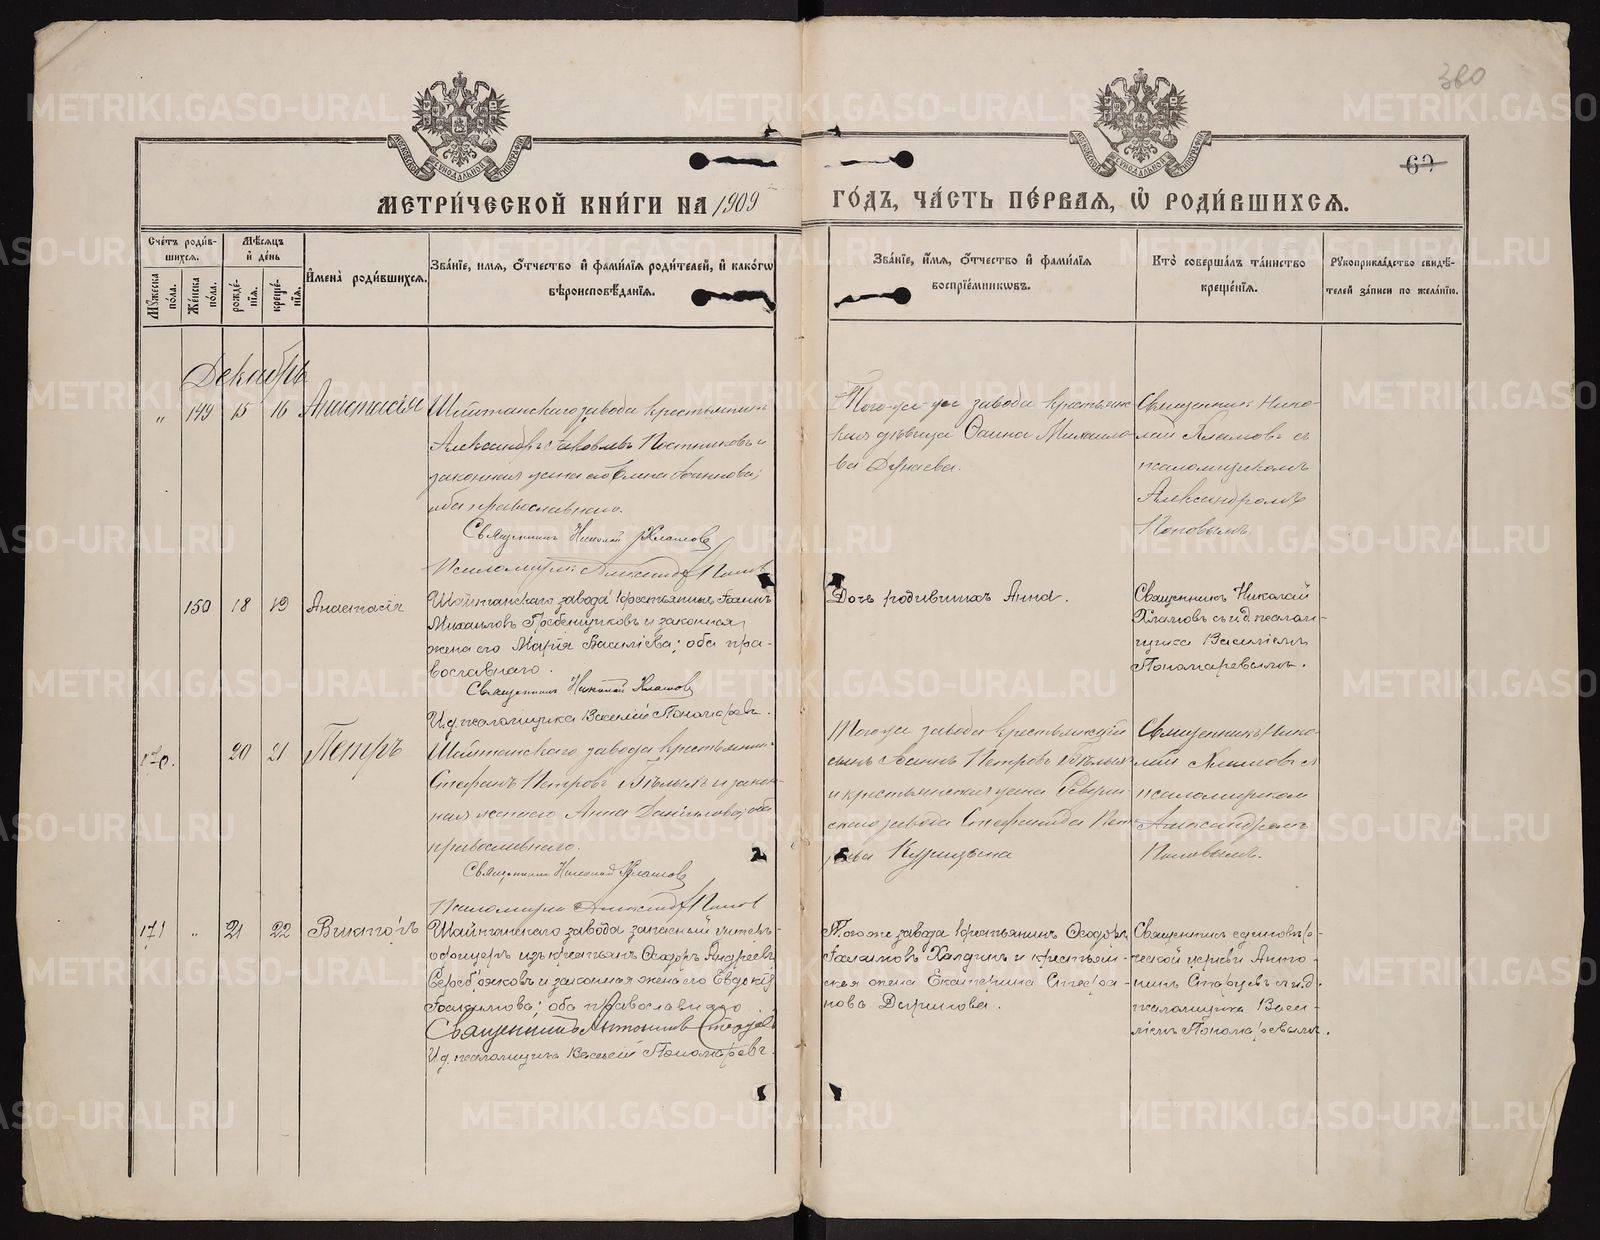 380
60
МЕТРИ́ЧЕСКОЙ КНИ́ГИ НА 1909 ГО́ДЪ, ЧА́СТЬ ПЕ́РВАЯ, Ѡ РОДИ́ВШИХСЯ.
Сче́тъ роди́в-
шихся.
Мѣ́сяцъ
и҆ де́нь
Мꙋжеска по́ла.
Же́нска по́ла.
рожде́-
нїя.
креще́-
нїя.
И҆мена̀ роди́вшихся.
Зва́нїе, имя, о́тчество и҆ фами́лїя роди́телей, и҆ како́гѡ
вѣроисповѣ́данїя.
Зва́нїе, и҆́мя, о́тчество и҆ фами́лїя
воспрїе́мникѡвъ.
Кто̀ соверша́лъ та́инство
креще́нїя.
Рꙋкоприкла́дство свидѣ́-
телей за́писи по жела́нїю.
Декабрь
" 149 15 16 Анастасія
Шайтанскаго завода крестьянинъ
Александръ Яковлевъ Постниковъ и
законная жена его Елена Іоаннова;
оба православнаго.
Священникъ Николай Хламовъ
Псаломщикъ Александръ Поповъ
Того-же завода крестьянс-
кая дѣвица Михаило-
ва
Священникъ Нико-
лай Хламовъ съ
псаломщикомъ
Александромъ
Поповымъ.
150 18 19 Анастасія
Шайтанскаго завода крестьянинъ
Михаиловъ Гребенщиковъ и законная
жена его Марія Василіева; оба пра-
вославнаго.
Священникъ Николай Хламовъ
И.д. псаломщика Василій Пономаревъ.
Дочь родившихъ Анна.
Священникъ Николай
Хламовъ съ и.д. псалом-
щика Василіемъ
Пономаревымъ.
170. 20 21 Петръ
Шайтанскаго завода крестьянинъ
Стефанъ Петровъ Бѣлыхъ и закон-
ная жена его Анна Даніилова; оба
православнаго.
Священникъ Николай Хламовъ
Псаломщикъ Александръ Поповъ
Того-же завода крестьянскій
сынъ Іоаннъ Петровъ Бѣлыхъ
и крестьянская жена
скаго завода Стефанида Пет-
рова Курицына
Священникъ Нико-
лай Хламовъ съ
псаломщикомъ
Александромъ
Поповымъ.
171 " 21 22 Викторъ
Шайтанскаго завода запасный унтеръ-
офицеръ изъ крестьянъ Ѳеодоръ Андреевъ
и законная жена его Евдокія
оба православнаго
Священникъ Антонинъ Старцевъ
И.д. псаломщика Василій Пономаревъ.
Того же завода крестьянинъ Ѳеодоръ
Халдинъ и крестьян-
ская жена Екатерина Стефа-
нова
Священникъ единовѣр-
ческой церкви Анто-
нинъ Старцевъ съ и.д.
псаломщика Васи-
ліемъ Пономаревымъ.
METRIKI.GASO-URAL.RU